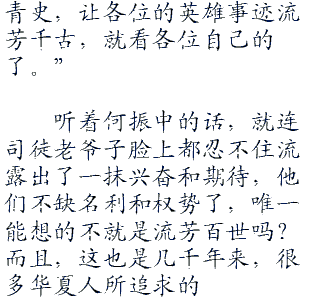 青史，让各位的英雄事迹流
芳千古，就看各位自己的
了。”
听着何振中的话，就连
司徒老爷子脸上都忍不住流
露出了一抹兴奋和期待，他
们不缺名利和权势了，唯一
能想的不就是流芳百世吗？
而且，这也是几千年来，很
多华夏人所追求的